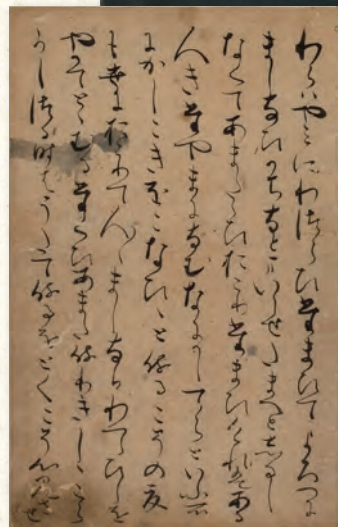 わらはやみにわつらひたまひてよろつに
ましなひかちなとまいらせたまへとしるし
なくてあまたゝひおこりたまひけれはある
人きたやまになむなにかしてらといふ所
にかしこきをこなひ人侍るこその夏
も世におこりて人〱ましなひわつらひしを
やかてとゝむるたくひあまた侍りきしゝこら
かしつる時はうたて侍るをとくこそ心みさせ